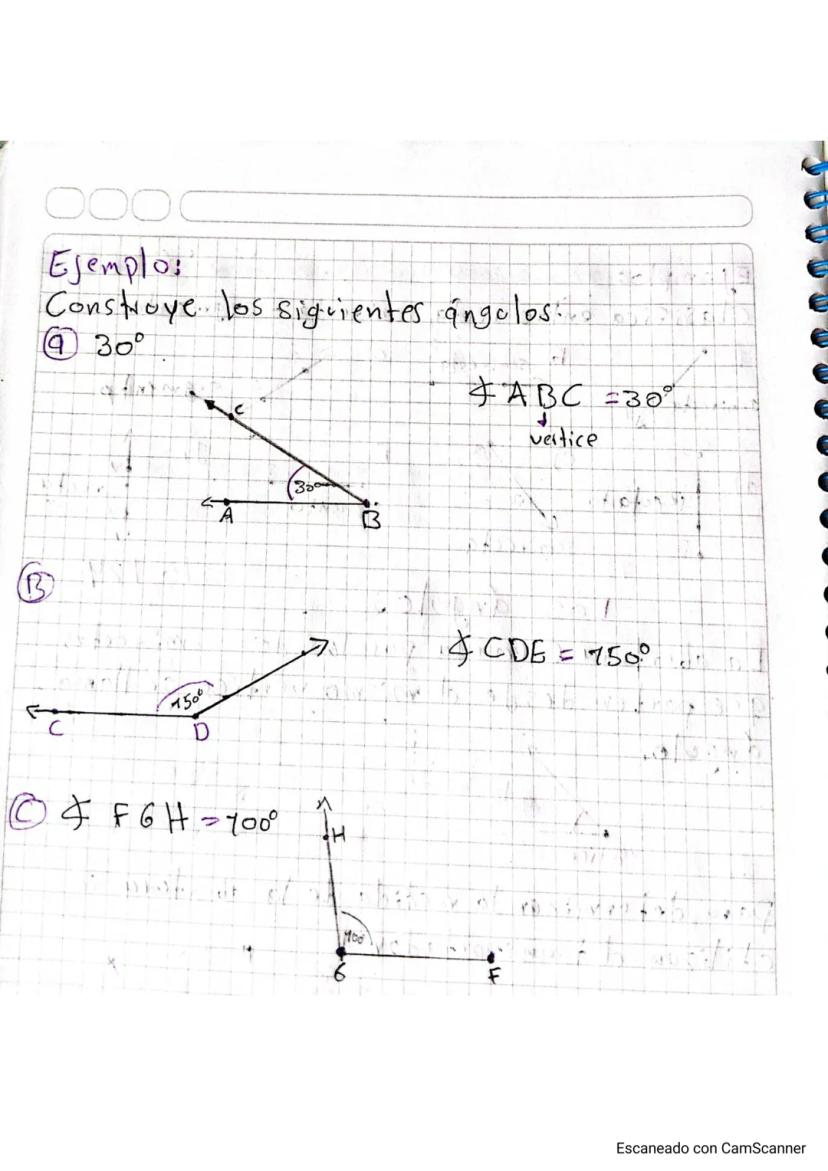 Ejemplo:
Construye los siguientes ángulos:
a 30°
C
30°
A
B
∡ ABC = 30°
vertice
B
150°
C
D
∡ CDE = 150°
C ∡ FGH = 100°
H
100°
G
F
Escaneado con CamScanner